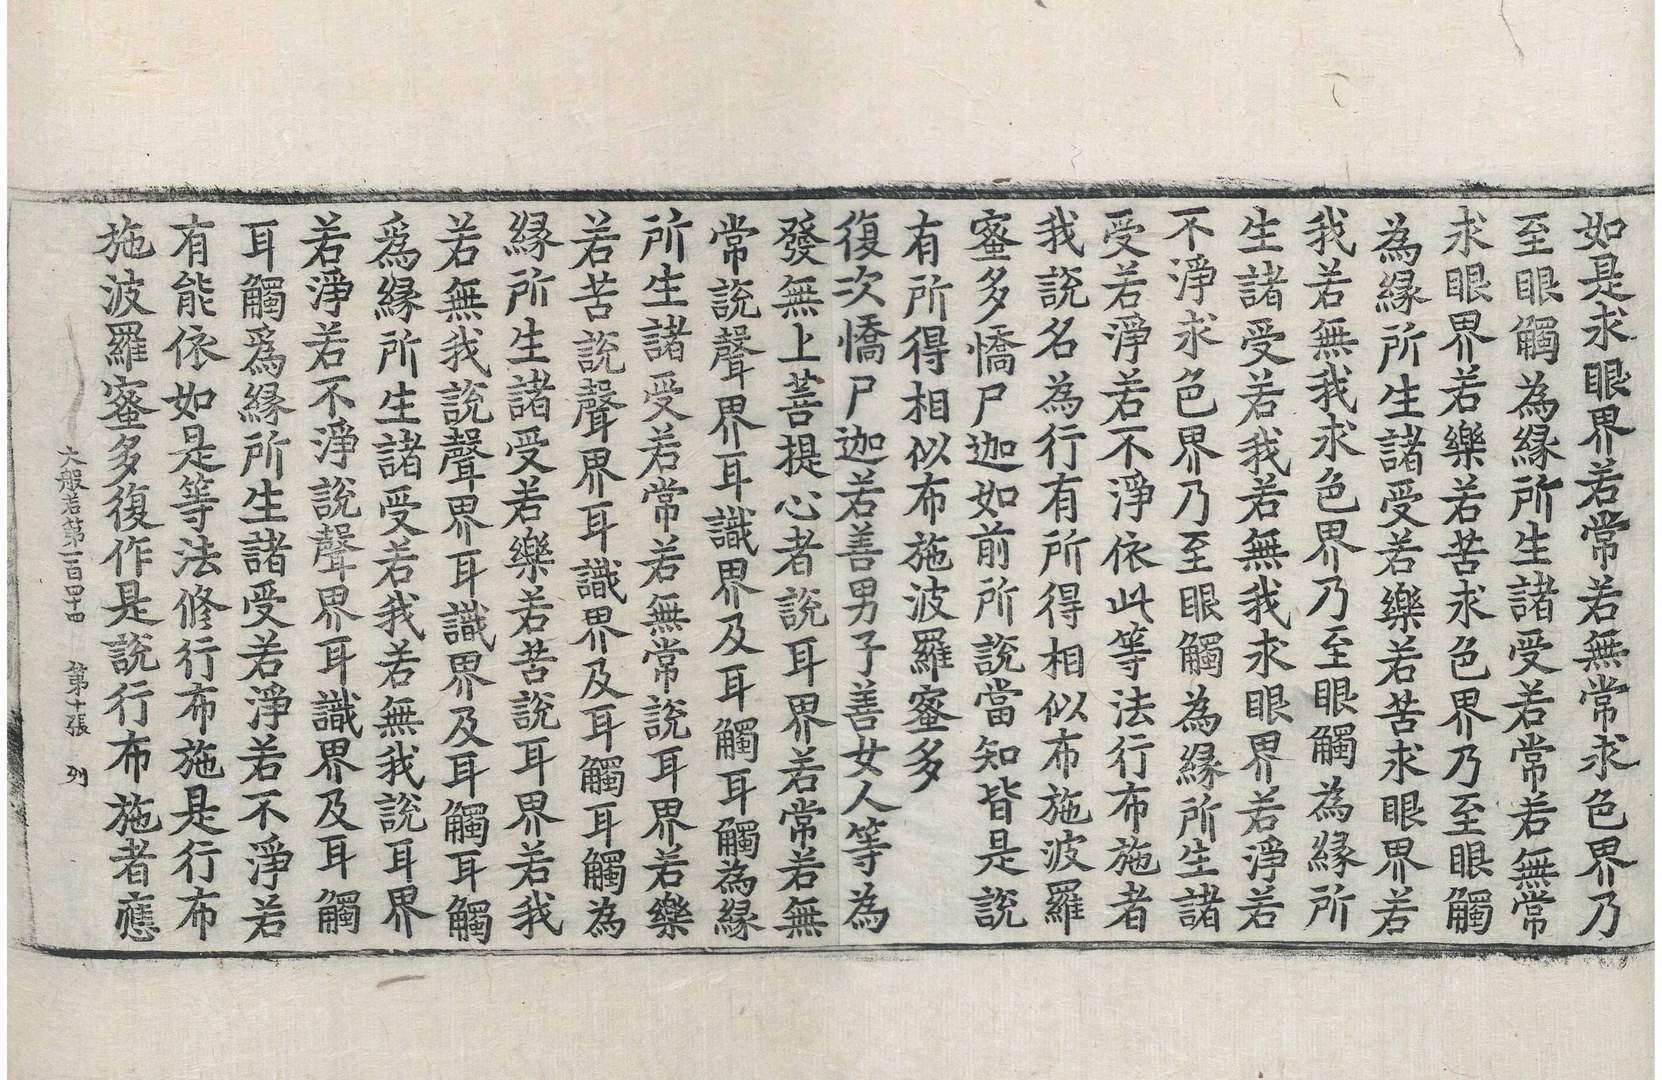 如是求眼界若常若無常求色界乃
至眼觸為緣所生諸受若常若無常
求眼界若樂若苦求色界乃至眼觸
為緣所生諸受若樂若苦求眼界若
我若無我求色界乃至眼觸為緣所
生諸受若我若無我求眼界若淨若
不淨求色界乃至眼觸為緣所生諸
受若淨若不淨依此等法行布施者
我說名為行有所得相似布施波羅
蜜多憍尸迦如前所說當知皆是說
有所得相似布施波羅蜜多
復次憍尸迦若善男子善女人等為
發無上菩提心者說耳界若常若無
常說聲界耳識界及耳觸耳觸為緣
所生諸受若常若無常說耳界若樂
若苦說聲界耳識界及耳觸耳觸為
緣所生諸受若樂若苦說耳界若我
若無我說聲界耳識界及耳觸耳觸
爲緣所生諸受若我若無我說耳界
若淨若不淨說聲界耳識界及耳觸
耳觸爲緣所生諸受若淨若不淨若
有能依如是等法修行布施是行布
施波羅蜜多復作是說行布施者應
大般若第一百四十四 第十張 列